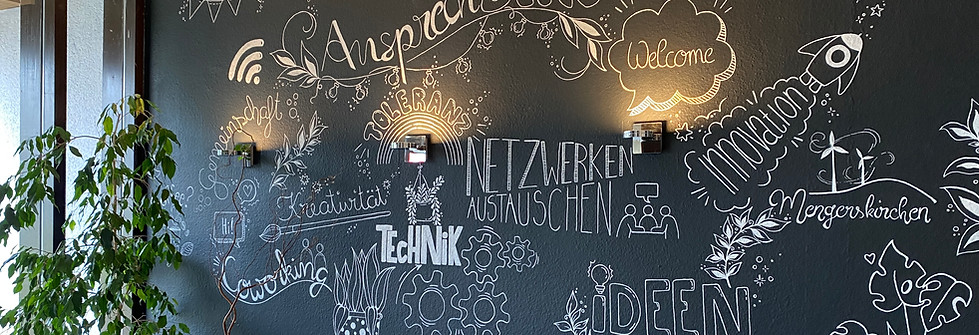 Welcome
TOLERANZ
Innovation
NETZWERKEN
AUSTAUSCHEN
Kreativität
Mengerskirchen
TECHNIK
Coworking
iDEEN